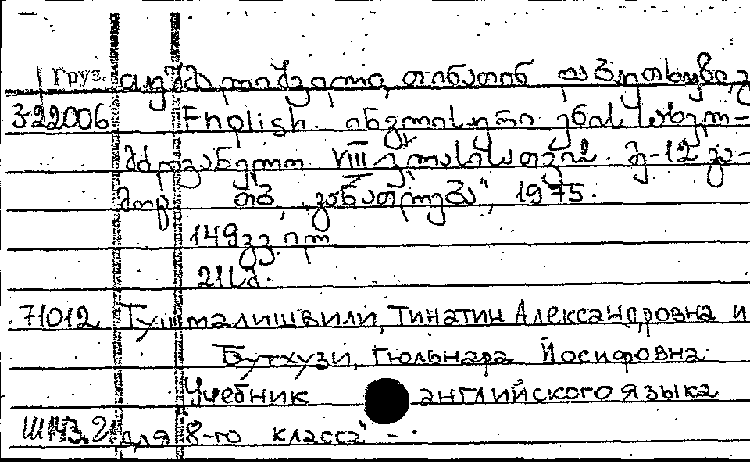 Груз. თუშმალიშვილი, თინათინ
3-22006 English ინგლისური ენის სახელ-
მძღვანელო VIII კლასისათვის. მე-12 გა-
მოც. თბ., "განათლება", 1975.
149 გვ.
21 სმ.
71012 Тушмалишвили, Тинатин Александровна и
Бутхузи, Гюльнара Иосифовна.
Учебник английского языка
для 8-го класса". -